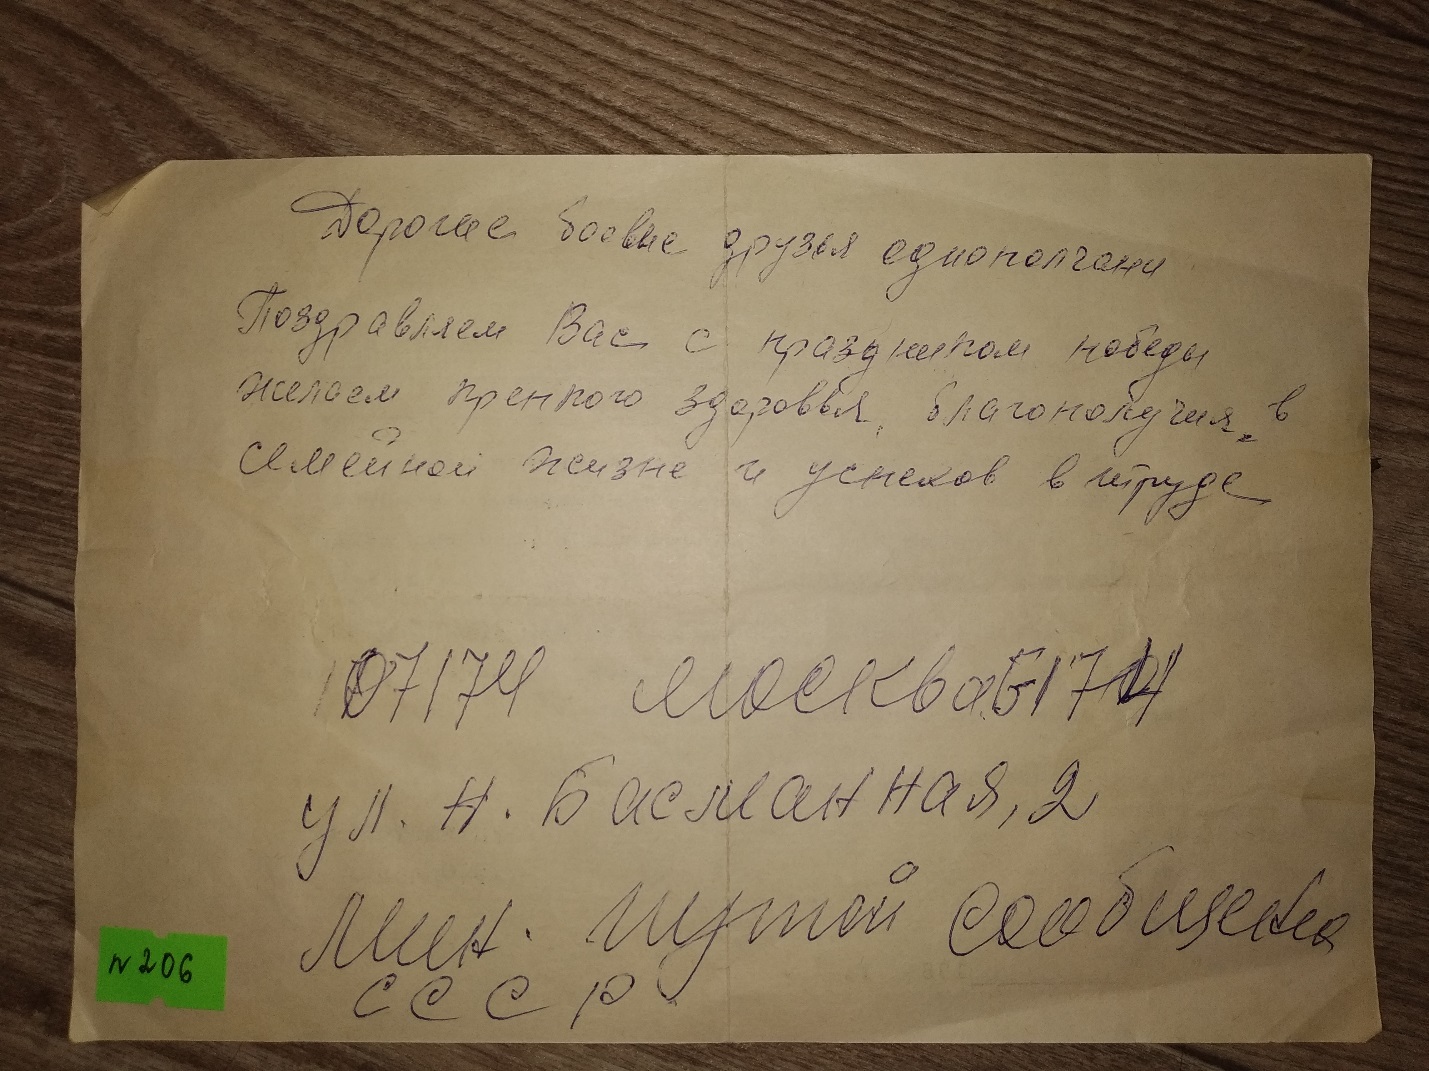 Дорогие боевые друзья однополчани
Поздравляем Вас с праздником победы
желаем крепкого здоровья, благополучия, в
семейной жизне и успехов в труде
107174 Москва Б174
ул. Н. Басманная, 2
Мин. Путей Сообщения
СССР
N 206